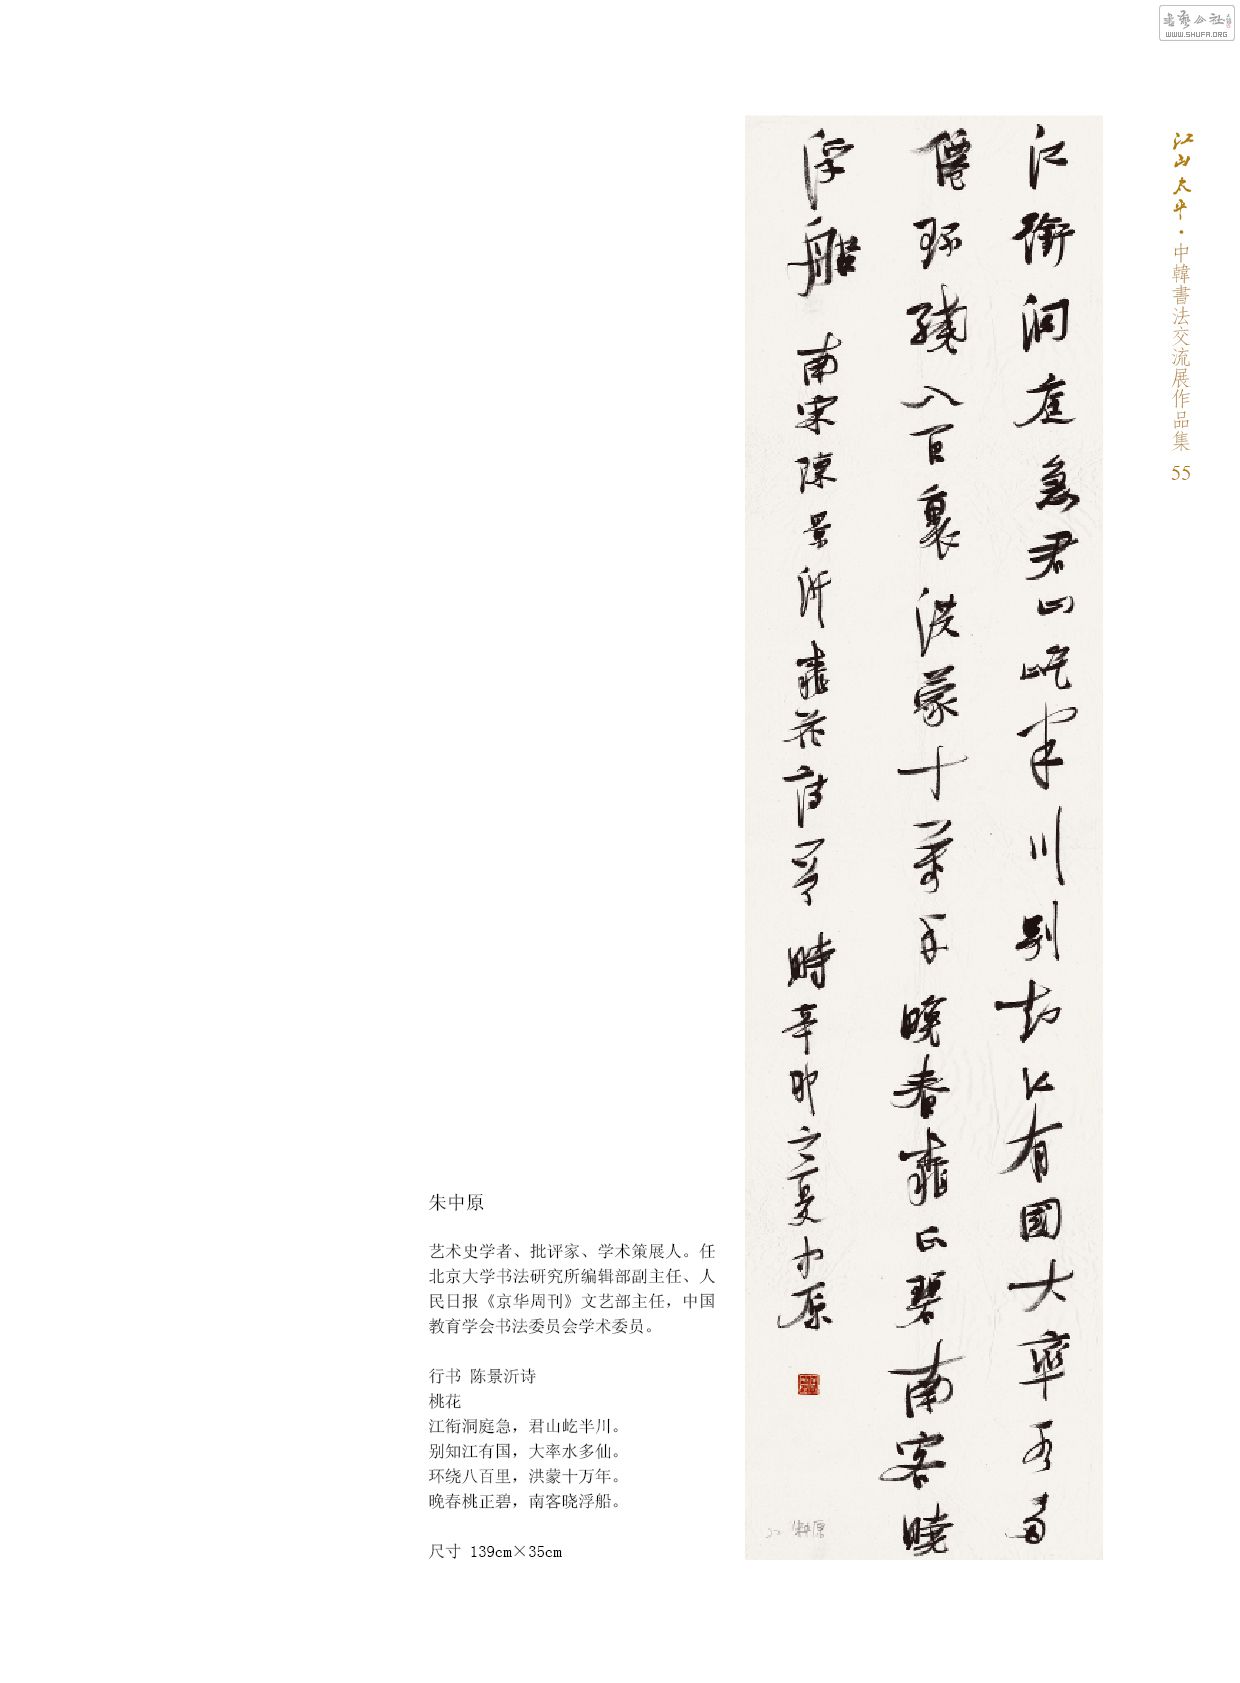 書藝公社
WWW.SHUFA.ORG
江山太平·中韓書法交流展作品集 55
江銜洞庭急君山屹半川別知江有國大率水多
僊環繞八百裏洪蒙十萬年晚春桃正碧南客曉
浮船 南宋陳景沂桃花詩 時辛卯之夏中原
朱中原
艺术史学者、批评家、学术策展人。任
北京大学书法研究所编辑部副主任、人
民日报《京华周刊》文艺部主任，中国
教育学会书法委员会学术委员。
行书 陈景沂诗
桃花
江衔洞庭急，君山屹半川。
别知江有国，大率水多仙。
环绕八百里，洪蒙十万年。
晚春桃正碧，南客晓浮船。
尺寸 139cm×35cm